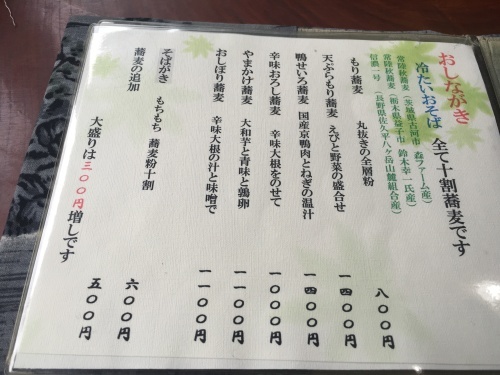 おしながき
冷たいおそば 全て十割蕎麦です
常陸秋蕎麦(茨城県古河市 森ファーム産)
常陸秋蕎麦(栃木県益子市 鈴木幸一氏産)
信濃一号(長野県佐久平八ヶ岳山麓組合産)
もり蕎麦 丸抜きの全層粉 八〇〇円
天ぷらもり蕎麦 えびと野菜の盛合せ 一四〇〇円
鴨せいろ蕎麦 国産京鴨肉とねぎの温汁 一四〇〇円
辛味おろし蕎麦 辛味大根をのせて 一〇〇〇円
やまかけ蕎麦 大和芋と青味と鶏卵 一一〇〇円
おしぼり蕎麦 辛味大根の汁と味噌で 一一〇〇円
そばがき もちもち 蕎麦粉十割 六〇〇円
蕎麦の追加 五〇〇円
大盛りは三〇〇円増しです